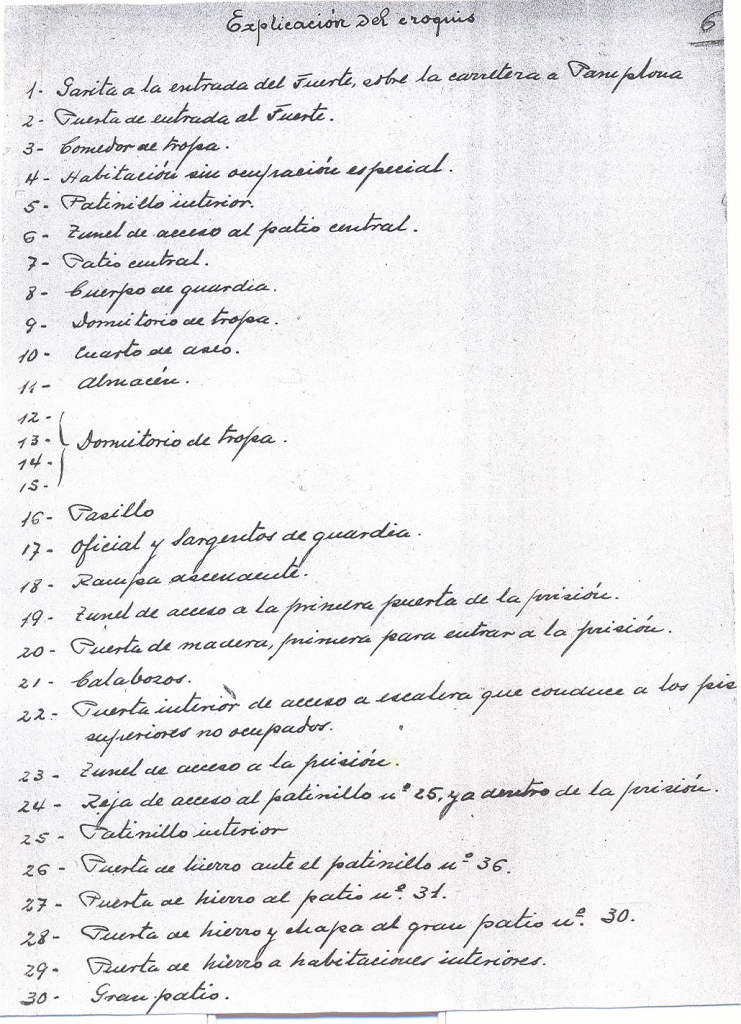 Explicación del croquis
6
1- Garita a la entrada del Fuerte, sobre la carretera a Pamplona
2- Puerta de entrada al Fuerte.
3- Comedor de tropa.
4- Habitación sin ocupación especial.
5- Patinillo interior.
6- Tunel de acceso al patio central.
7- Patio central.
8- Cuerpo de guardia.
9- Dormitorio de tropa.
10- Cuarto de aseo.
11- Almacén.
12-
13- Dormitorio de tropa.
14-
15-
16- Pasillo
17- Oficial y Sargentos de guardia.
18- Rampa ascendente.
19- Tunel de acceso a la primera puerta de la prisión.
20- Puerta de madera, primera para entrar a la prisión.
21- Calabozos.
22- Puerta interior de acceso a escalera que conduce a los pis
superiores no ocupados.
23- Tunel de acceso a la prisión.
24- Reja de acceso al patinillo nº 25, ya dentro de la prisión.
25- Patinillo interior
26- Puerta de hierro ante el patinillo nº 36.
27- Puerta de hierro al patio nº 31.
28- Puerta de hierro y chapa al gran patio nº 30.
29- Puerta de hierro a habitaciones interiores.
30- Gran patio.